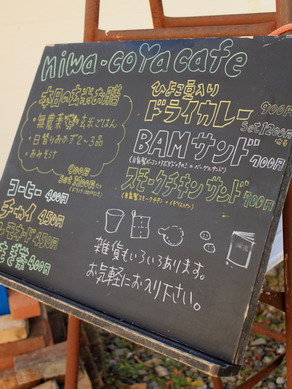 miwa・coya cafe
本日のお膳
・無農薬玄米ごはん
・日替りおかず2〜3品
・おみそ汁
900円
コーヒー 400円
チャイ 450円
450円
茶 400円
ひよこ豆入り
ドライカレー 900円
set 1200円
BAMサンド 700円
スモークチキンサンド 700円
雑貨もいろいろあります。
お気軽にお入り下さい。